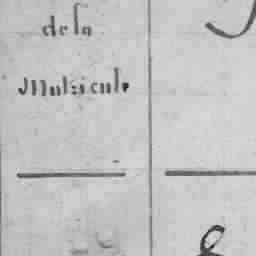 de la
Matricule